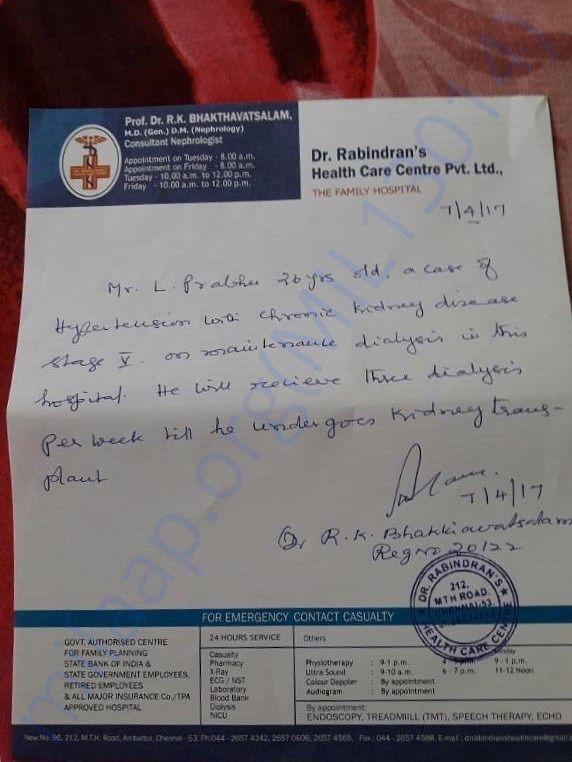 Prof. Dr. R.K. BHAKTHAVATSALAM,
M.D. (Gen.) D.M. (Nephrology)
Consultant Nephrologist
Appointment on Tuesday - 8.00 a.m.
Appointment on Friday - 8.00 a.m.
Tuesday - 10.00 a.m. to 12.00 p.m.
Friday - 10.00 a.m. to 12.00 p.m.
Dr. Rabindran's
Health Care Centre Pvt. Ltd.,
THE FAMILY HOSPITAL
7/4/17
Mr. L. Prabhu 26 yrs old, a case of
Hypertension with chronic kidney disease
stage V. on maintenance dialysis in this
hospital. He will recieve three dialysis
Per week till he undergoes kidney trans-
plant
7/4/17
Dr R.K. Bhakkiavatsalam
Regno 20122
DR. RABINDRAN'S
212,
M.T.H ROAD,
CHENNAI-53.
HEALTH CARE CENTRE
FOR EMERGENCY CONTACT CASUALTY
GOVT. AUTHORISED CENTRE
FOR FAMILY PLANNING
STATE BANK OF INDIA &
STATE GOVERNMENT EMPLOYEES,
RETIRED EMPLOYEES
& ALL MAJOR INSURANCE Co.,/TPA
APPROVED HOSPITAL
24 HOURS SERVICE
Casualty
Pharmacy
X-Ray
ECG / NST
Laboratory
Blood Bank
Dialysis
NICU
Others
Sunday
Physiotherapy : 9-1 p.m. 9 - 1 p.m.
Ultra Sound : 9-10 a.m. 6 - 7 p.m. 11-12 Noon
Colour Dopoler : By appointment
Audiogram : By appointment
By appointment:
ENDOSCOPY, TREADMILL (TMT), SPEECH THERAPY, ECHO
New No. 96, 212, M.T.H. Road, Ambattur, Chennai - 53. Ph:044 - 2657 4242, 2657 0606, 2657 4565, Fax : 044 - 2657 4588, E-mail : drrabindranshealthcare@gmail.co
milaap.org(MIL13014)